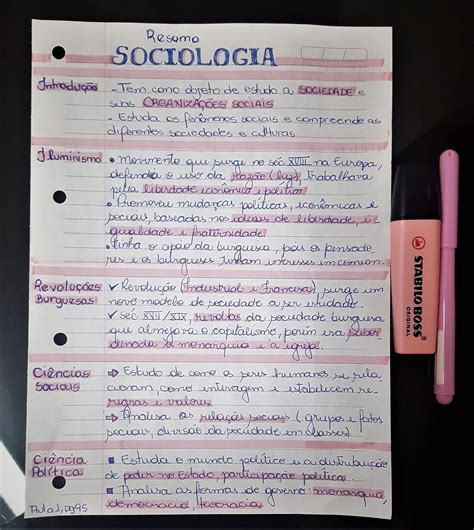 Resumo
SOCIOLOGIA
Introdução
- Tem como objeto de estudo a SOCIEDADE e
suas ORGANIZAÇÕES SOCIAIS
- Estuda os fenômenos sociais e compreende as
diferentes sociedades e culturas.
Iluminismo
• movimento que surge no séc XVIII na Europa,
defendia o uso da razão (luz). Trabalhava
pela liberdade econômica e política
• Promoveu mudanças políticas, econômicas e
sociais, baseadas nos ideais de liberdade,
igualdade e fraternidade
• Tinha o apoio da burguesia, pois os pensado
res e os burgueses tinham interesses em comum.
Revoluções
Burguesas
✓ Revolução (Industrial e Francesa), surge um
novo modelo de sociedade a ser estudado.
✓ Séc XVII / XIX, revoltas da sociedade burguesa
que almejava o capitalismo, porém era subor
dinada a monarquia e a igreja.
Ciências
Sociais
⇒ Estudo de como os seres humanos se rela
cionam, como interagem e estabelecem re-
gras e valores.
⇒ Analisa as relações sociais (grupos e fatos
sociais, divisão da sociedade em classes)
Ciência
Política
■ Estuda o mundo político e a distribuição
de poder no Estado, participação política.
■ Analisa as formas de governo: monarquia,
democracia, teocracia.
Aula 1, pg 95
STABILO BOSS
ORIGINAL